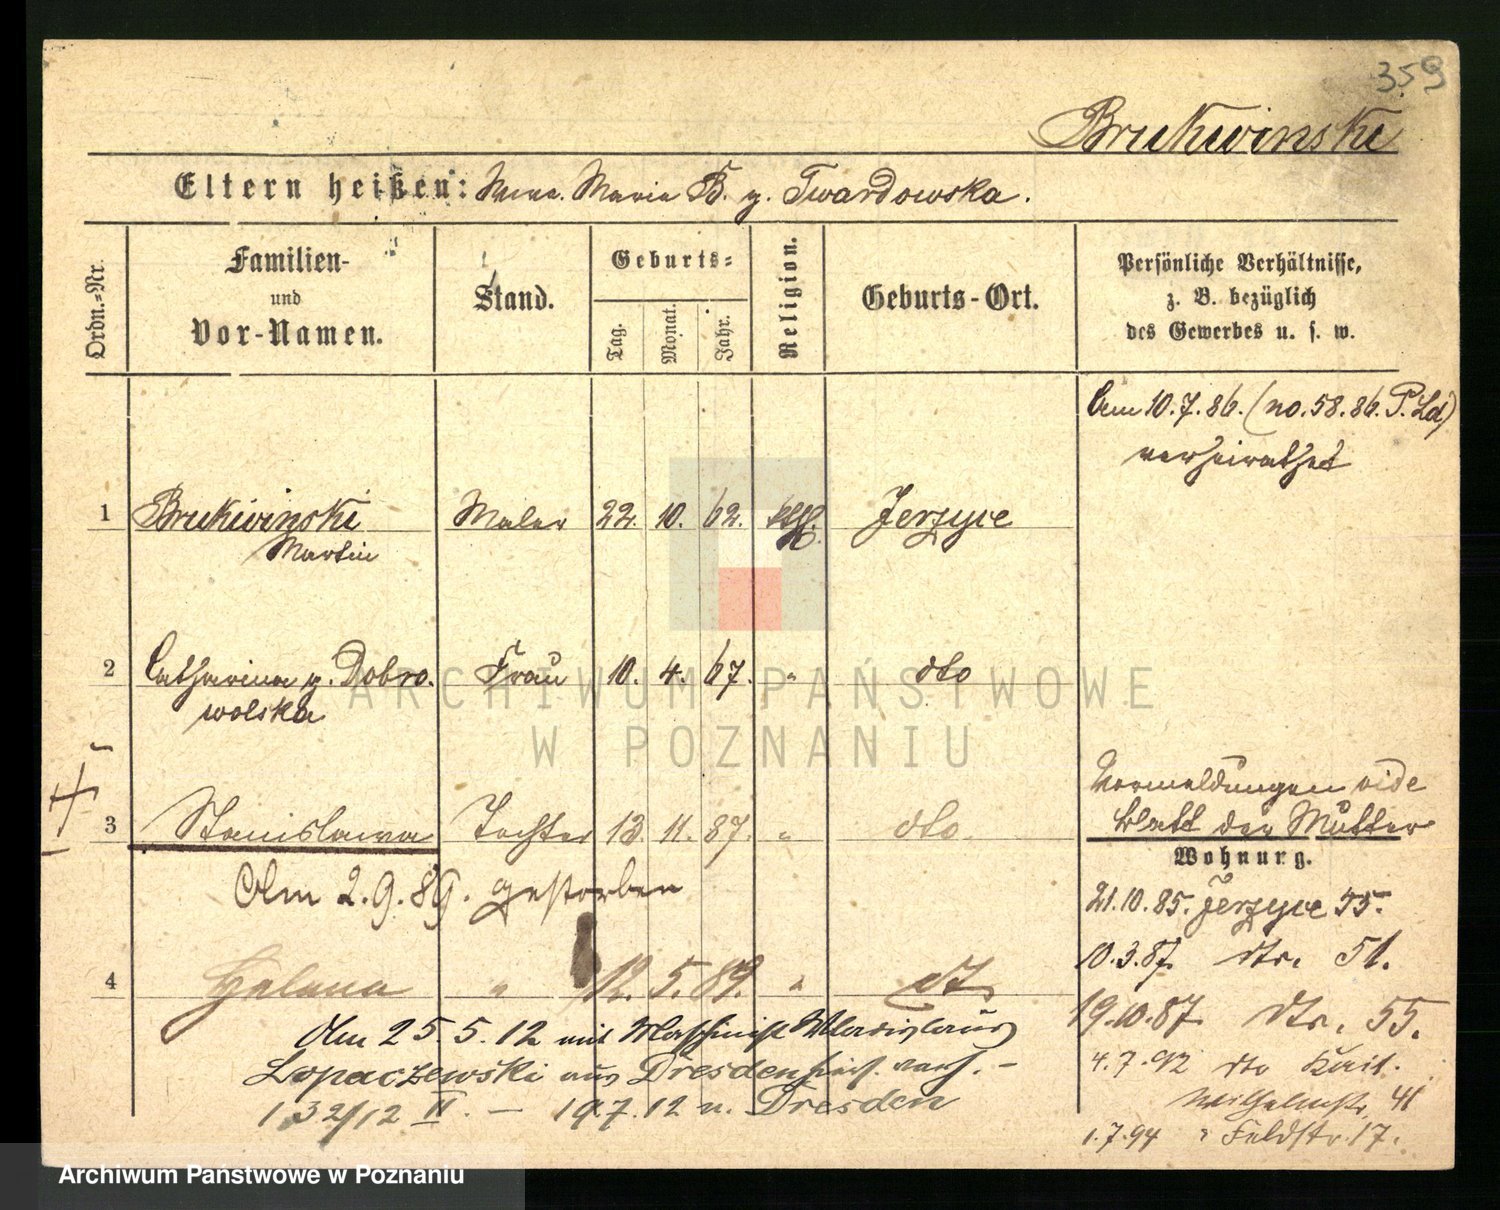 359
Brukwinski
Eltern heißen: Maria B. g. Twardowska.
Ordn.=Nr.
Familien- und Vor-Namen.
Stand.
Geburts=
Tag. Monat. Jahr.
Religion.
Geburts-Ort.
Persönliche Verhältnisse,
z. B. bezüglich
des Gewerbes u. s. w.
Am 10.7.86. (no. 58.86. P. Ld)
verheirathet
1 Brukwinski Maler 22. 10. 62. kth. Jerzyce
Martin
2 Catharina g. Dobro- Frau 10. 4. 67. " dto
wolska
3 Stanislawa Tochter 13. 11. 87. " dto.
Am 2.9.89. gestorben
Vormeldungen vide
Blatt der Mutter
Wohnung.
21.10.85. Jerzyce 55.
10.3.87. dto. 51.
19.10.87. dto. 55.
4.7.92 dto Kais.
Wilhelmstr. 41
1.7.94 " Feldstr. 17.
4 Helena " 12. 5. 89. " dt
Am 25.5.12 mit Maschinist Wladislaus
Lopaczewski aus Dresden hier verh. -
132/12 II. - 19.7.12 n. Dresden
ARCHIWUM PAŃSTWOWE
W POZNANIU
Archiwum Państwowe w Poznaniu